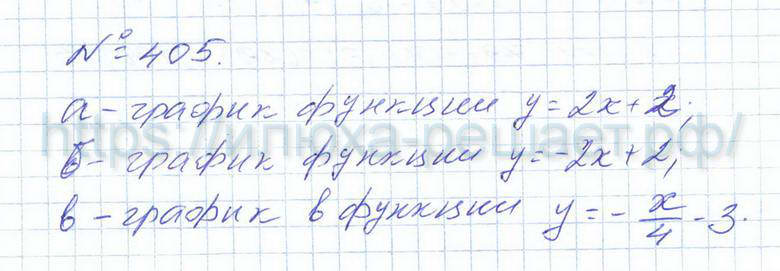 № 405.
а – график функции y = 2x + 2;
б – график функции y = -2x + 2;
в – график в функции y = - x/4 - 3.
https://илюха-решает.рф/